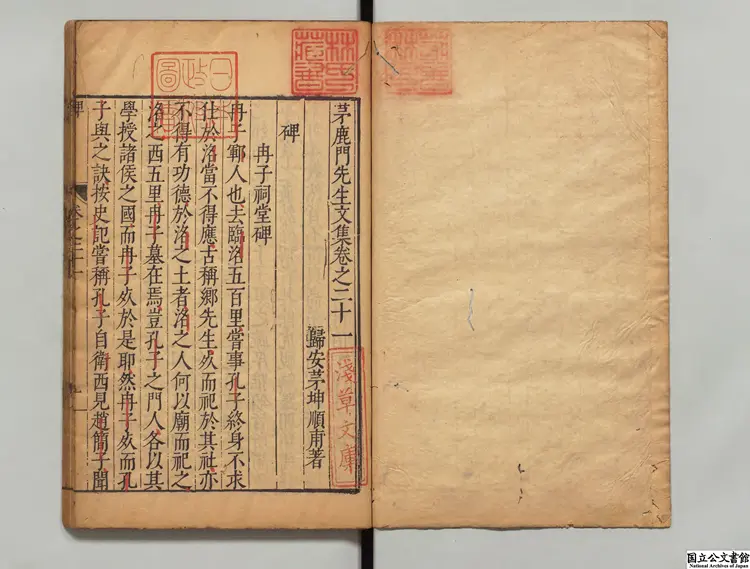 茅鹿門先生文集卷之二十一
歸安茅坤順甫著
碑
冉子祠堂碑
冉子鄆人也去臨洺五百里嘗事孔子終身不求
仕於洺當不得應古稱鄉先生歿而祀於其社亦
不得有功德於洺之土者洺之人何以廟而祀之
洺之西五里冉子墓在焉豈孔子之門人各以其
學授諸侯之國而冉子歿於是耶然冉子歿而孔
子與之訣按史記嘗稱孔子自衛西見趙簡子聞
碑
卷之二十一
一
林氏藏書
日本政圖書
淺草文庫
国立公文書館
National Archives of Japan